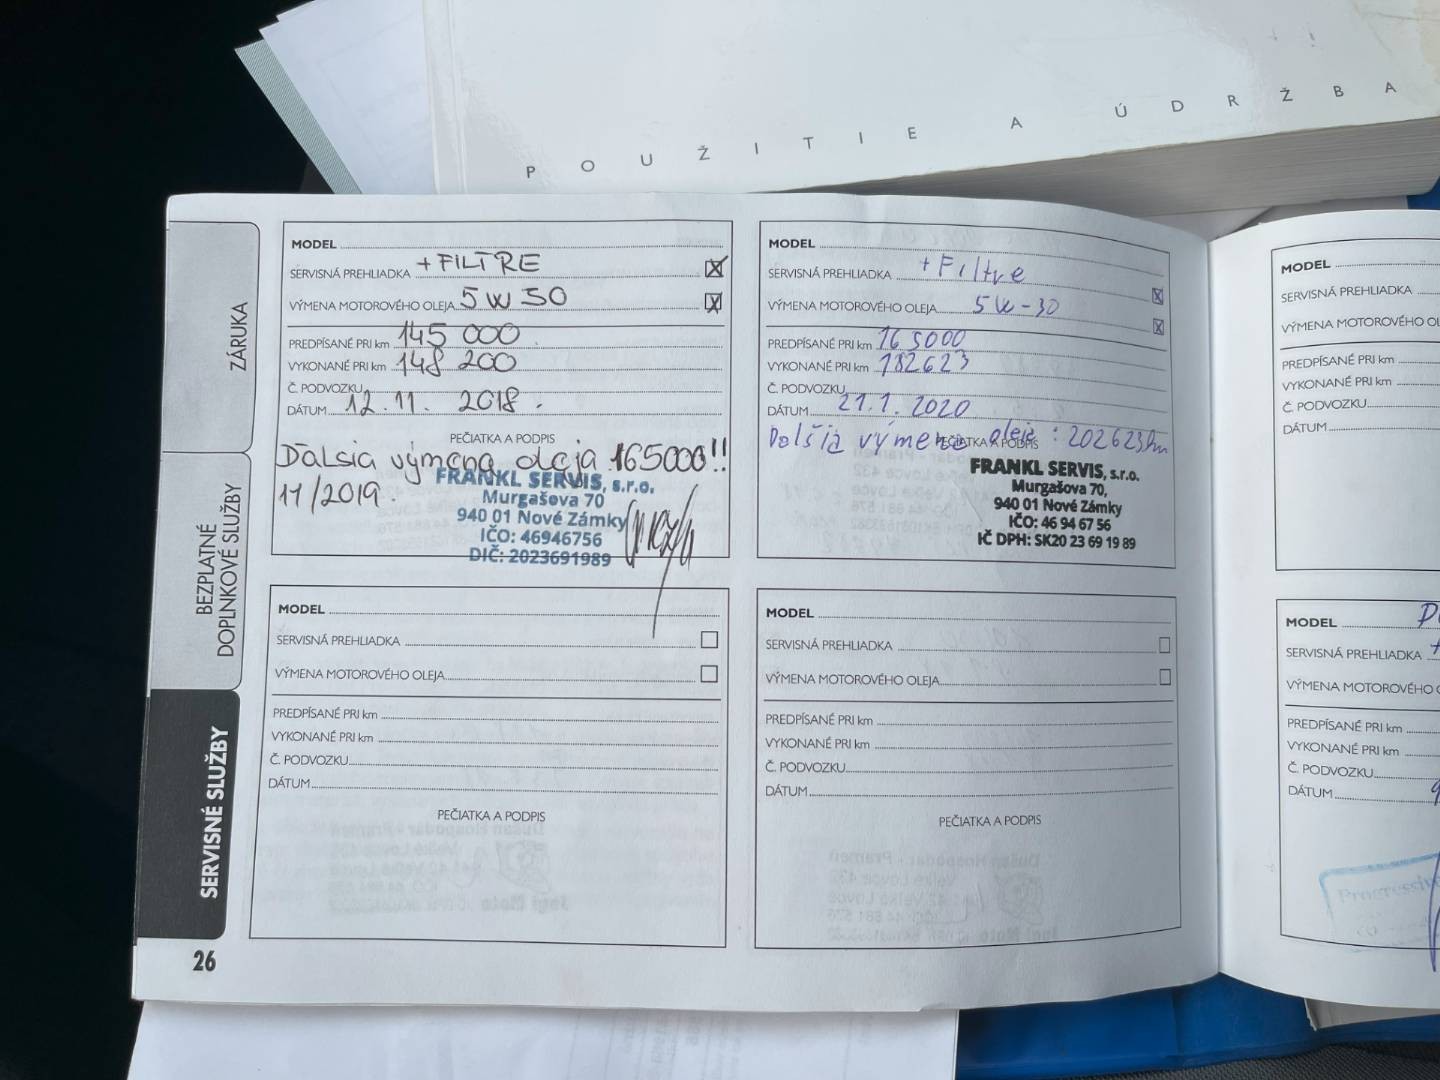 POUŽITIE A ÚDRŽBA
ZÁRUKA
BEZPLATNÉ
DOPLNKOVÉ SLUŽBY
SERVISNÉ SLUŽBY
26
MODEL
SERVISNÁ PREHLIADKA +FILTRE
VÝMENA MOTOROVÉHO OLEJA 5W30
PREDPÍSANÉ PRI km 145 000
VYKONANÉ PRI km 148 200
Č. PODVOZKU
DÁTUM 12.11. 2018.
PEČIATKA A PODPIS
Ďalsia výmena oleja 165000!!
11/2019
FRANKL SERVIS, s.r.o.
Murgašova 70
940 01 Nové Zámky
IČO: 46946756
DIČ: 2023691989
MODEL
SERVISNÁ PREHLIADKA +Filtre
VÝMENA MOTOROVÉHO OLEJA 5W-30
PREDPÍSANÉ PRI km 165000
VYKONANÉ PRI km 182623
Č. PODVOZKU
DÁTUM 21.1. 2020
PEČIATKA A PODPIS
Dalšia výmena oleje: 202623km
FRANKL SERVIS, s.r.o.
Murgašova 70,
940 01 Nové Zámky
IČO: 46 94 67 56
IČ DPH: SK20 23 69 19 89
MODEL
SERVISNÁ PREHLIADKA
VÝMENA MOTOROVÉHO OLEJA
PREDPÍSANÉ PRI km
VYKONANÉ PRI km
Č. PODVOZKU
DÁTUM
PEČIATKA A PODPIS
MODEL
SERVISNÁ PREHLIADKA
VÝMENA MOTOROVÉHO OLEJA
PREDPÍSANÉ PRI km
VYKONANÉ PRI km
Č. PODVOZKU
DÁTUM
PEČIATKA A PODPIS
MODEL
SERVISNÁ PREHLIADKA
VÝMENA MOTOROVÉHO
PREDPÍSANÉ PRI km
VYKONANÉ PRI km
Č. PODVOZKU
DÁTUM
MODEL
SERVISNÁ PREHLIADKA
VÝMENA MOTOROVÉHO
PREDPÍSANÉ PRI km
VYKONANÉ PRI km
Č. PODVOZKU
DÁTUM